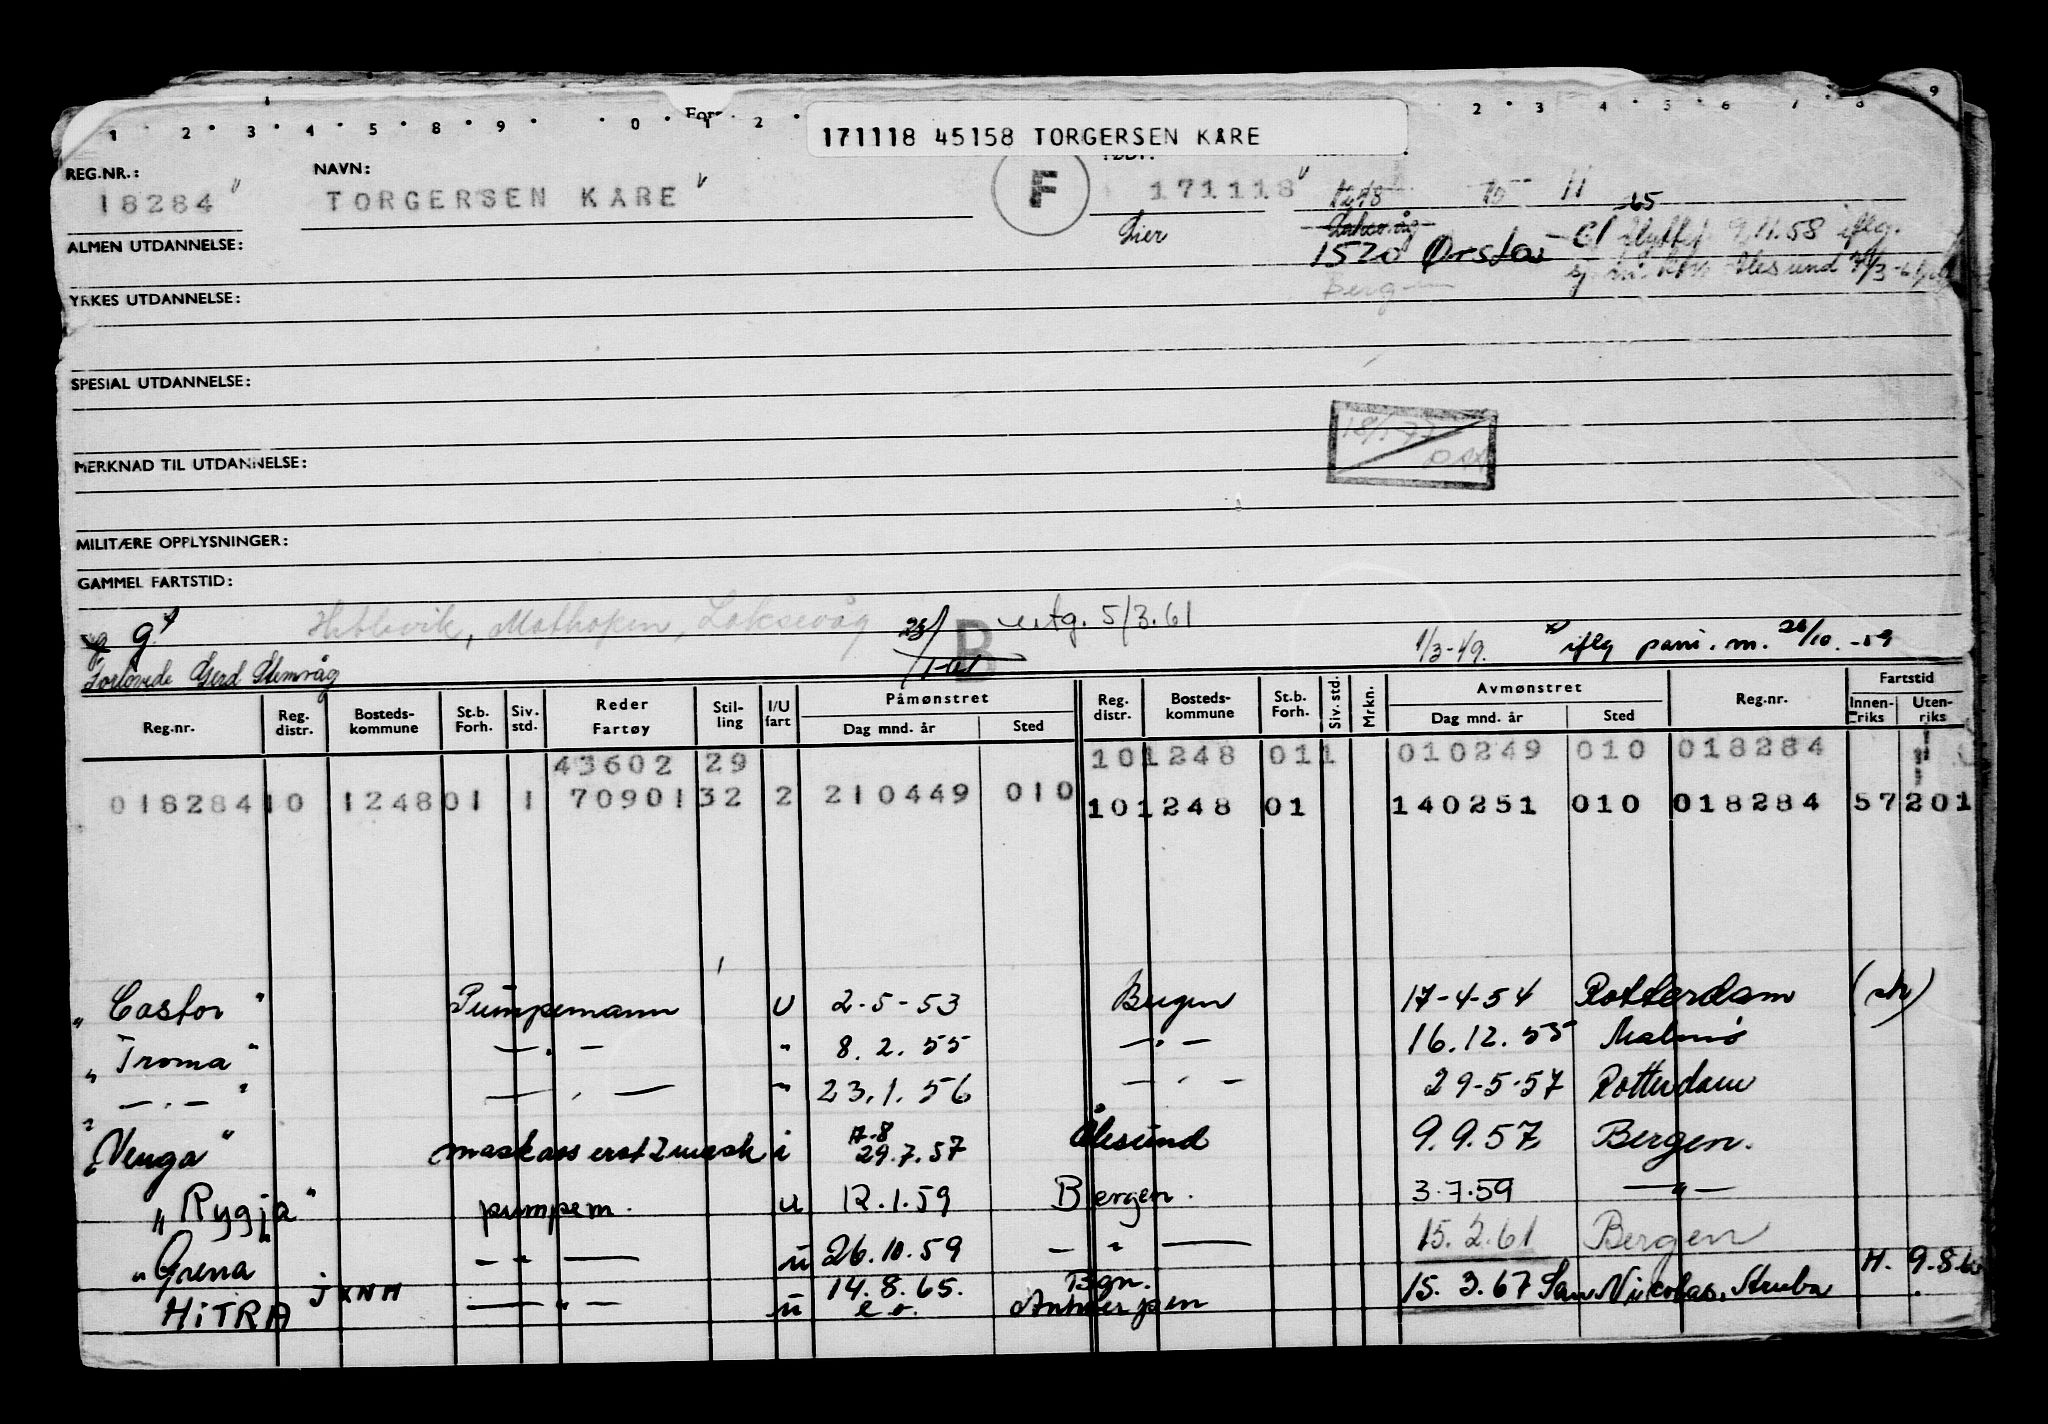 1 · 2 · 3 · 4 · 5 · 8 · 9 · · 0 · 1 · 2 · 2 · 3 4 · 5 · 6 7 · 8 9
171118 45158 TORGERSEN KARE
REG.NR.: NAVN: F
18284 TORGERSEN KARE 171118 1248 10 11
Lier -65
ALMEN UTDANNELSE: 1520 Ørsta 9.11.58 iflg.
Ålesund
YRKES UTDANNELSE: Bergen
SPESIAL UTDANNELSE:
MERKNAD TIL UTDANNELSE:
MILITÆRE OPPLYSNINGER:
GAMMEL FARTSTID:
g Mathopen, Laksevåg B utg. 5/3.61
1/3-49. x) iflg påm. m. 26/10.-59
Forlovede Gerd
Reg.nr. Reg. distr. Bosteds-kommune St.b. Forh. Siv. std. Reder Fartøy Stil-ling I/U fart Påmønstret Dag mnd. år Sted Reg. distr. Bosteds-kommune St.b. Forh. Siv. std. Mrkn. Avmønstret Dag mnd. år Sted Reg.nr. Fartstid Innen-riks Uten-riks
43602 29 10 1248 011 010249 010 018284
018284 10 1248 01 1 70901 32 2 210449 010 10 1248 01 140251 010 018284 57 201
" Castor " Pumpemann U 2-5-53 Bergen 17-4-54 Rotterdam
" Troma " — " — " 8.2.55 — " — 16.12.55 Malmø
" — " — " — " — " 23.1.56 — " — 29-5-57 Rotterdam
17-8
" Venga " maskass erst 2 mask i 29.7.57 Ålesund 9.9.57 Bergen.
" Rygja " pumpem. u 12.1.59 Bergen. 3.7.59 — " —
" Grena " — " — u 26.10.59 — " — 15.2.61 Bergen
14.8.65. Bgn. H.
HiTRA JXNH — " — u e.o. Antwerpen 15.3.67 San Nicolas, Aruba